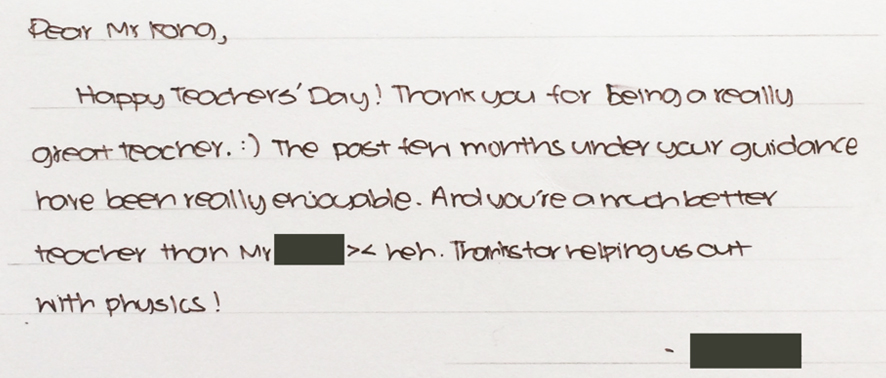 Dear Mr Kong,
Happy Teachers' Day! Thank you for being a really
great teacher. :) The past ten months under your guidance
have been really enjoyable. And you're a much better
teacher than Mr >< heh. Thanks for helping us out
with physics!
-